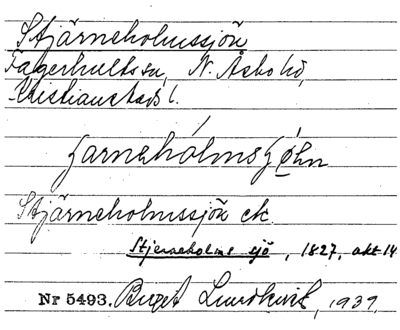 Stjärneholmssjön
Fagerhults sn, N. Åsbo hd,
Kristianstads l.
Stjärneholmssjön ek.
Stjerneholms sjö, 1827, akt 14
Nr 5493. Birgit Lundkvist, 1939.